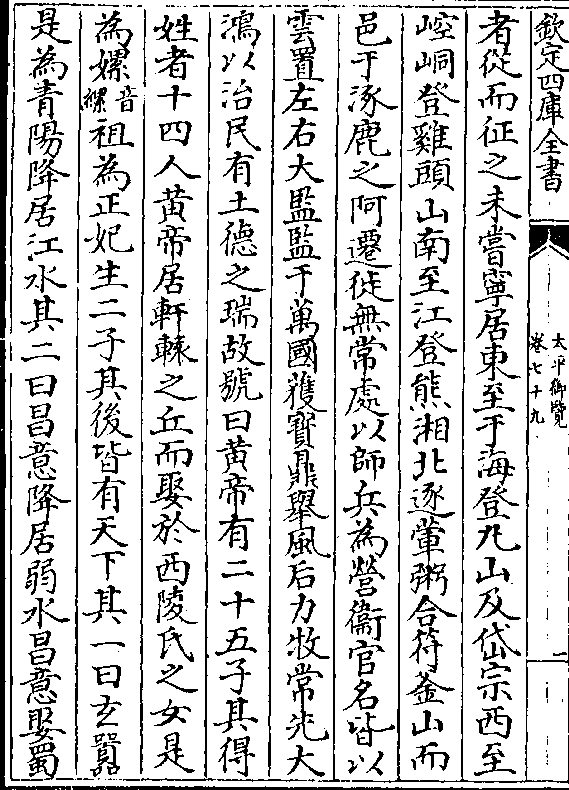 欽定四庫全書
太平御覽
卷七十九
一
者從而征之未嘗寧居東至于海登丸山及岱宗西至
崆峒登雞頭山南至江登熊湘北逐葷粥合符釜山而
邑于涿鹿之阿遷徙無常處以師兵為營衞官名皆以
雲置左右大監監于萬國獲寶鼎舉風后力牧常先大
鴻以治民有土德之瑞故號曰黄帝有二十五子其得
姓者十四人黄帝居軒轅之丘而娶於西陵氏之女是
為嫘音縲祖為正妃生二子其後皆有天下其一曰玄囂
是為青陽降居江水其二曰昌意降居弱水昌意娶蜀